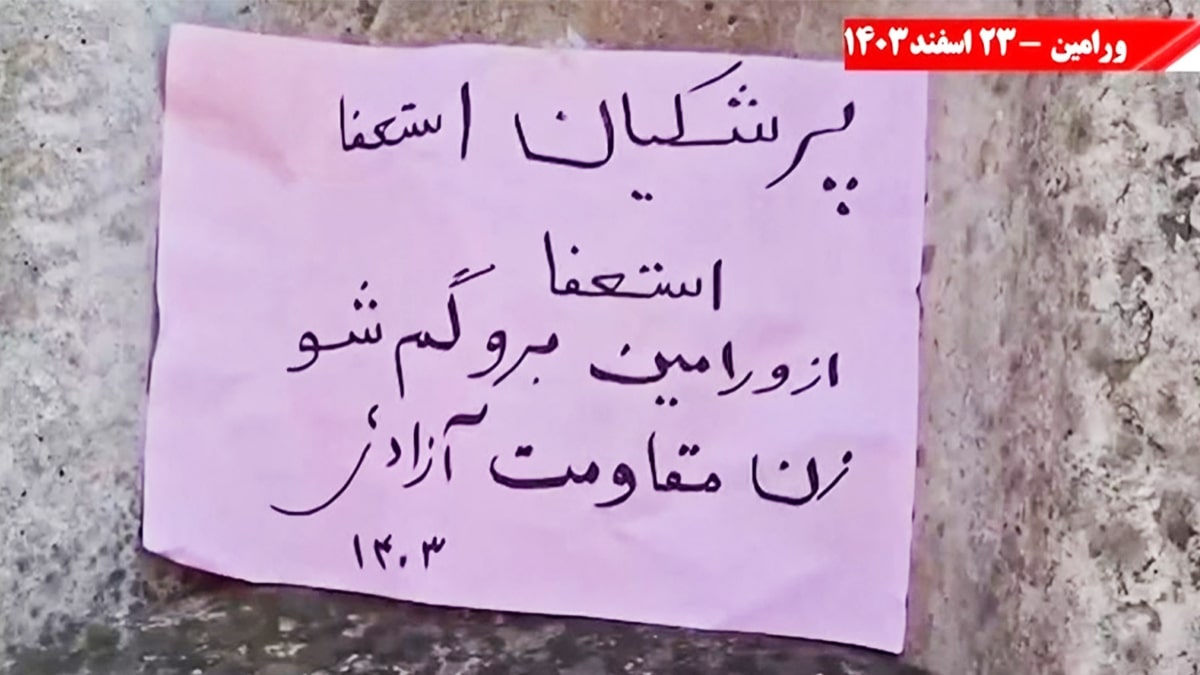 ورامین - ۲۳ اسفند ۱۴۰۳
پرشکیان استعفا
استعفا
از ورامین برو گم شو
زن مقاومت آزادی
۱۴۰۳